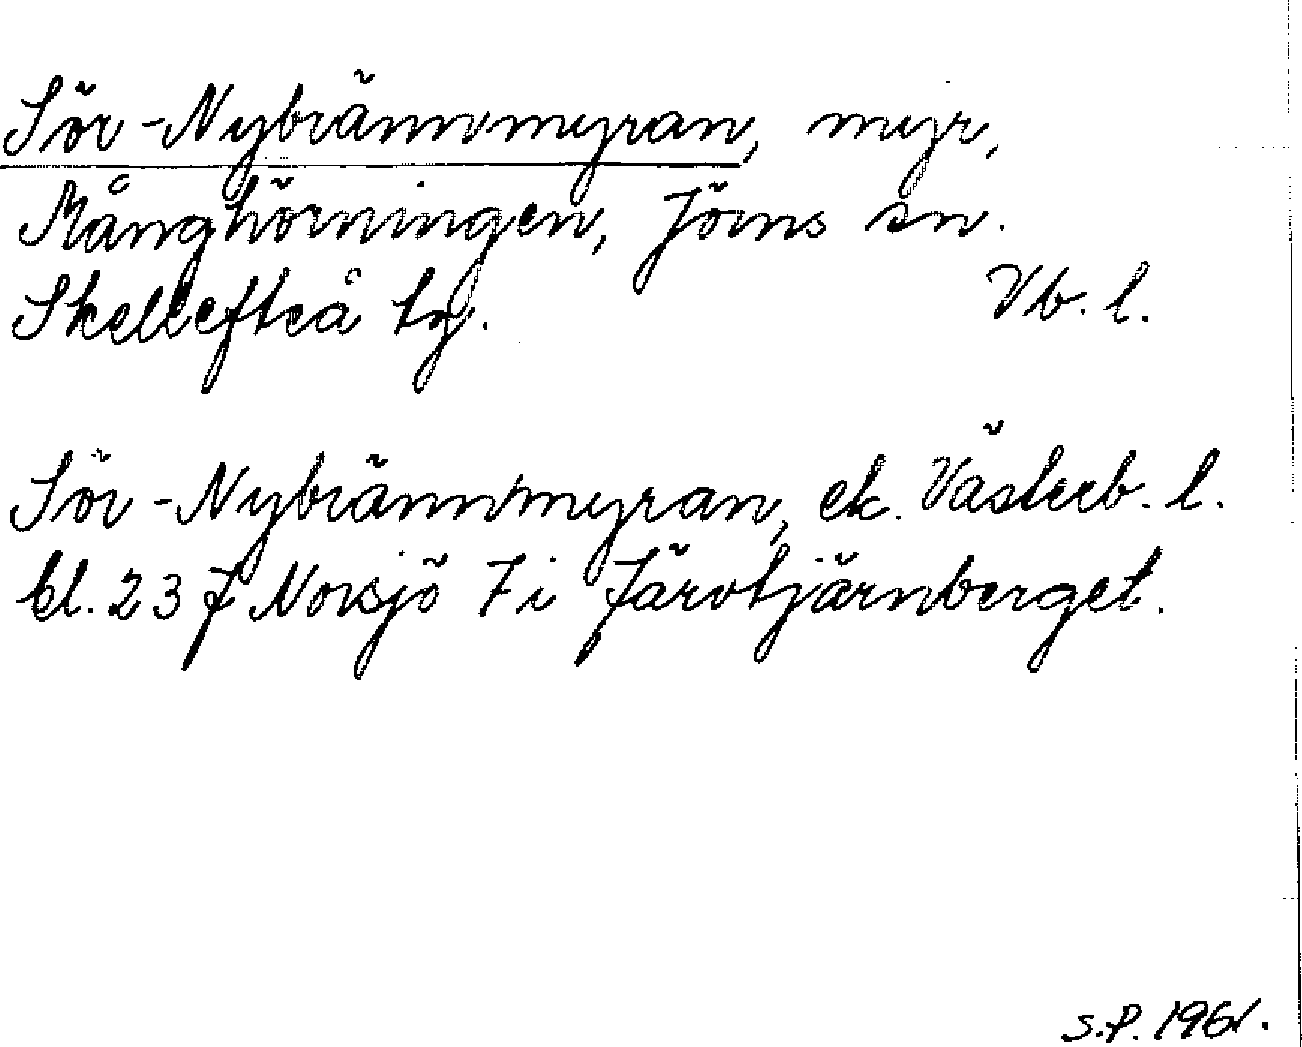 Sör-Nybrännmyran, myr,
Månghörningen, Jörns sn.
Skellefteå tg. Vb. l.
Sör-Nybrännmyran, ek. Västerb. l.
bl. 23 J Norsjö 7 i Järvtjärnberget.
S.P. 1961.